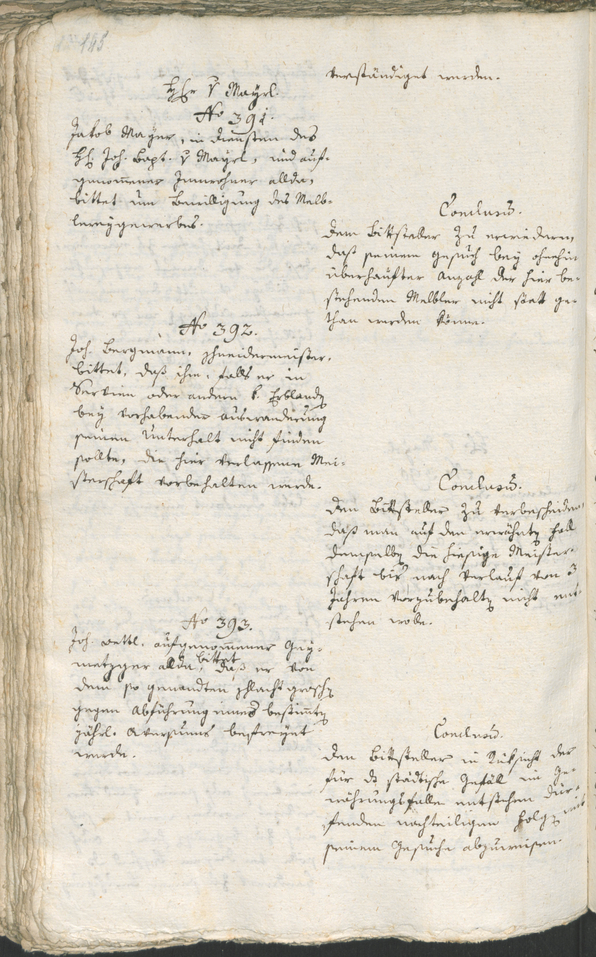 145
verständiget werden.
Hh. v Mayrl.
No 391.
Jakob Mayer, in diensten des
Hh. Joh. Bapt. v Mayrl, und auf-
genommener Innwohner allda,
bittet um Bewilligung des Melb-
lereygewerbes.
Conclusum.
dem Bittsteller zu erwiedern,
daß seinem Gesuch bey ohnehin
überhäufter Anzahl der hier be-
stehenden Melbler nicht statt ge-
than werden könne.
No 392.
Joh. Bergmann, Schneidermeister,
bittet, daß ihm, falls er in
Servien oder andern k. Erblanden
bey vorhabender auswanderung
seinen Unterhalt nicht finden
sollte, die hier verlassene Mei-
sterschaft vorbehalten werde.
Conclusum.
dem Bittsteller zu verbescheiden,
daß man auf den erwähnten fall
demselben die hiesige Meister-
schaft bis nach Verlauf von 3
Jahren vorzubehalten nicht ent-
stehen wolle.
No 393.
Joh. aufgenommener Gey-
metzger allda, bittet, daß er von
dem so genandten schlachtgroschen
gegen Abführung eines bestimmten
jährl. Aversums befreyet
werde.
Conclusum.
den Bittsteller in Rüksicht der
für das städtische Gefäll im Ge-
währungsfalle entstehen dür-
fenden nachteiligen Folgen mit
seinem Gesuche abzuweisen.